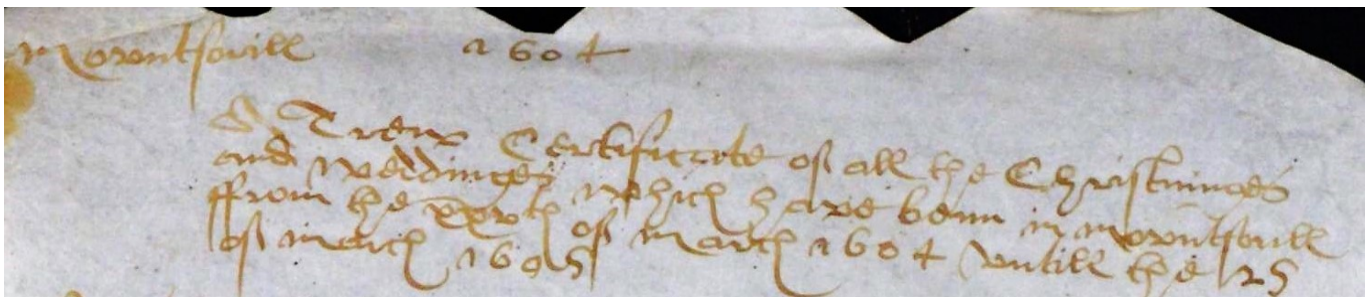 Mountsorill 1604
A Trew Certificate of all the Christninges
and weddinges which have benn in mountsorill
ffrom the xxvth of march 1604 vntill the 25
of march 1605